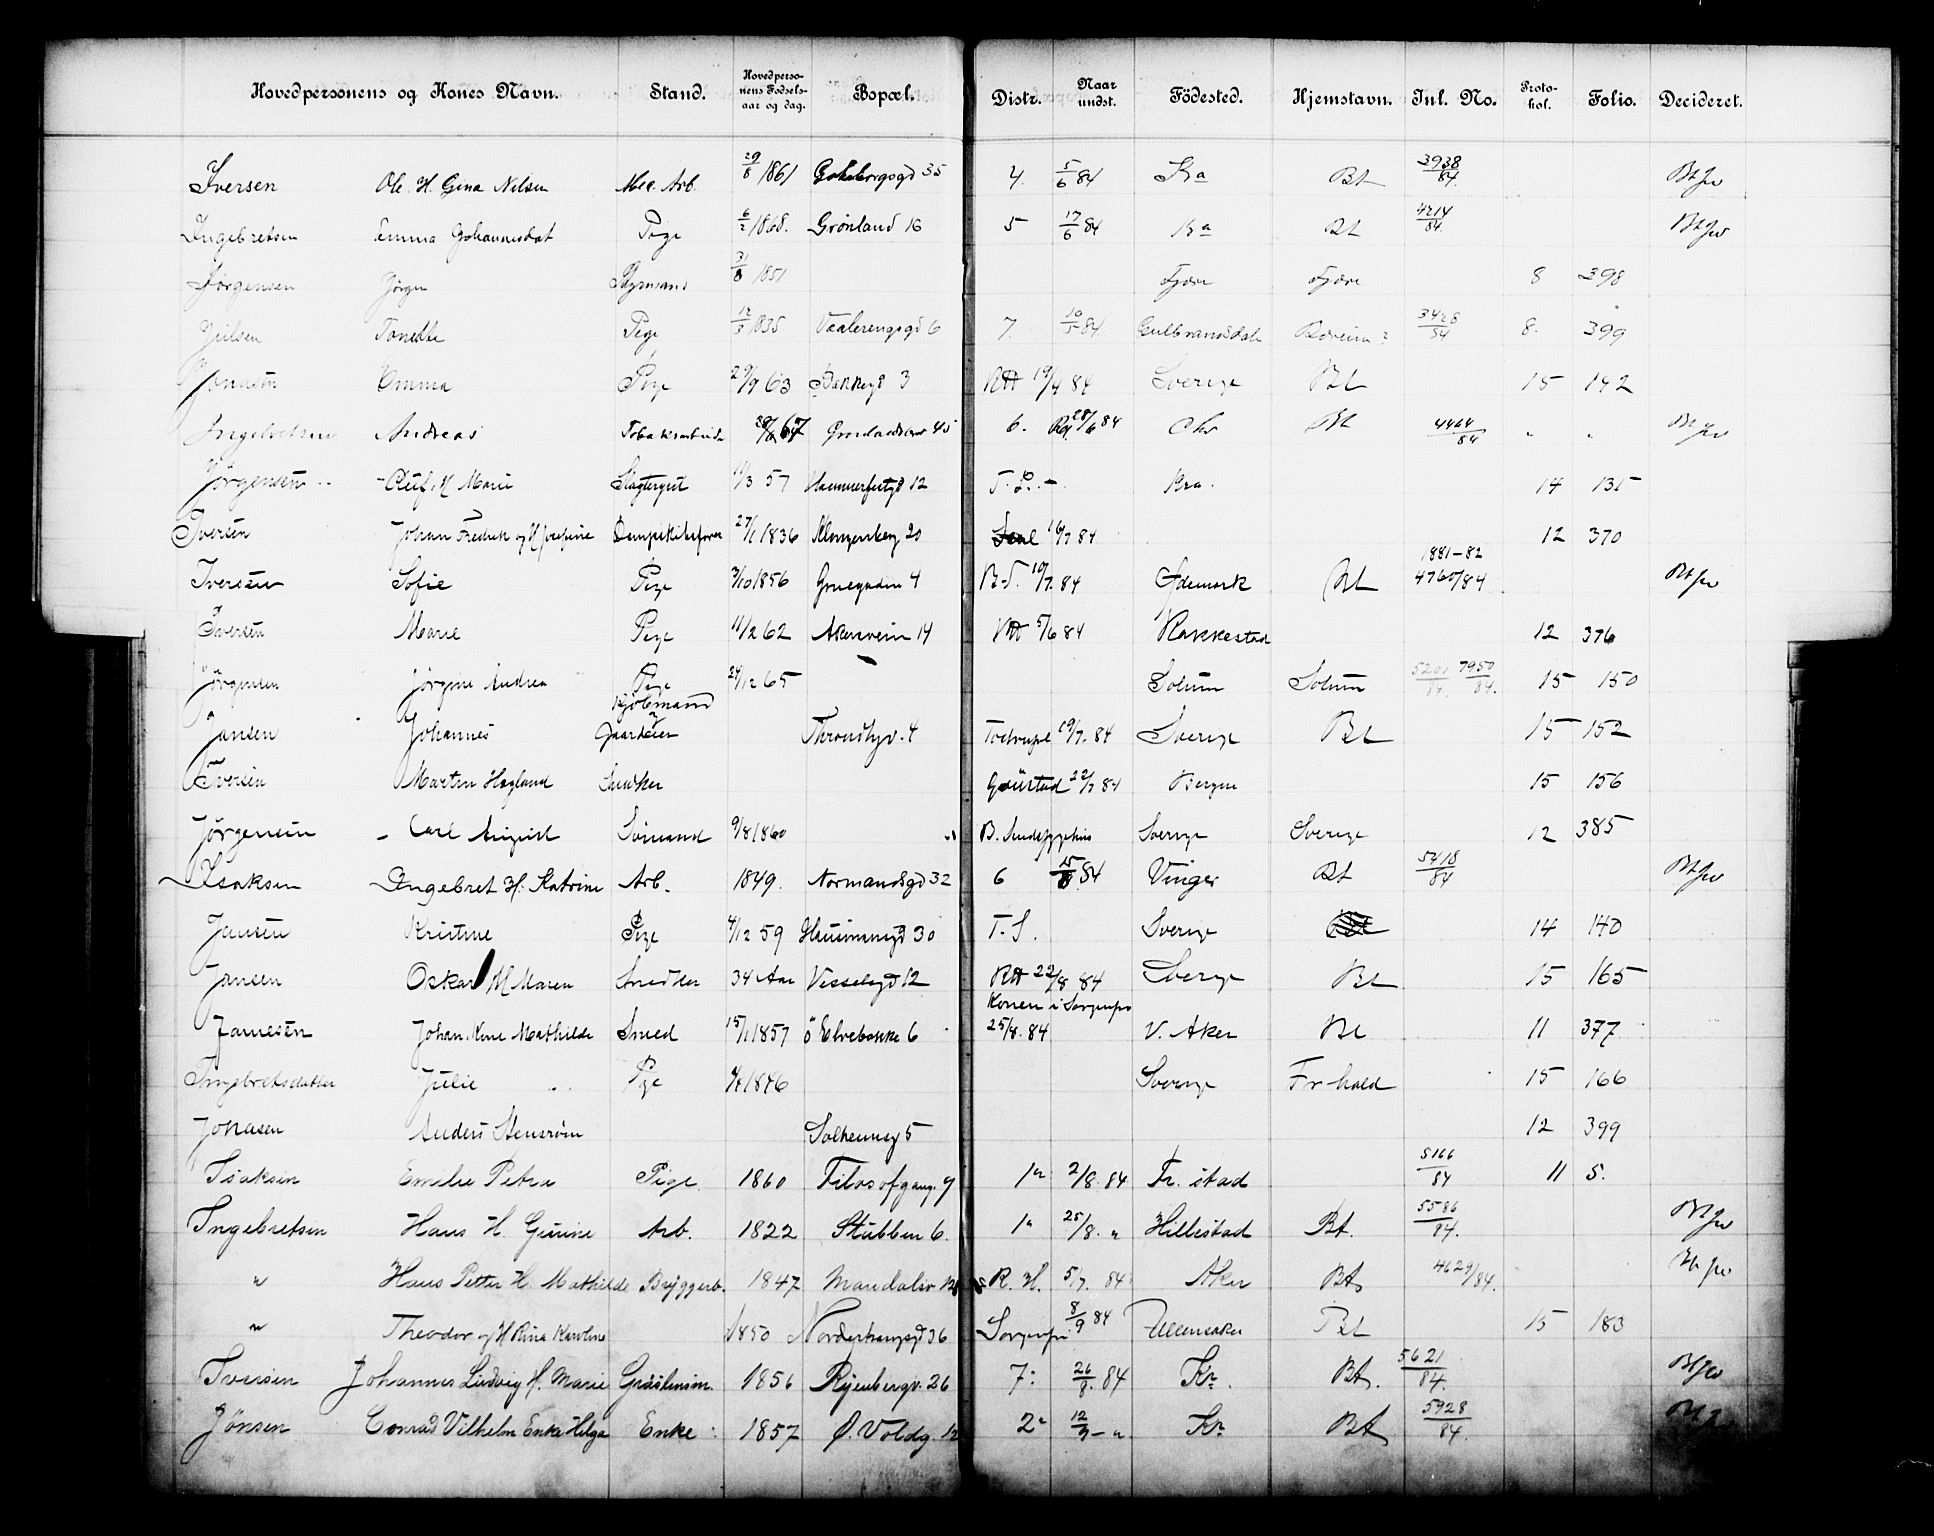 Hovedpersonens og Kones Navn. Stand. Hovedpersonens Fødselsaar og dag. Bopæl. Distr. Naar undst. Födested. Hjemstavn. Inl. No. Protokol. Folio. Decideret.
Iversen Ole. H. Gina Nilsen Mec. Arb. 29/8 1861 35 4. 5/6 84 Kra Bt 3938/84 Bt
Ingebretsen Emma Johannesdat Pige 6/2 1868. Grönland 16 5 17/6 84 Kra Bt 4214/84. Bt
Jörgensen Jörgen Styrmand 31/8 1851 Fjære Fjære 8 398
Julsen Tonette Pige 12/3 1835 Vaalerengsgd 6 7. 10/5 84 Gulbrandsdal 3428/84 8. 399
Jonasen Emma Pige 29/9 63 Bakkegt 3 RH 19/7 84 Sverige Bt 15 142
Ingebretsen Andreas Tobaksarbeide 67 45 6. 28/6 84 Chr Bt 4464/84 " "
Jörgensen Oluf. H Marie Slagtergut 11/3 57 Hammerfestgd 12 T. S. Kra. 14 135
Iversen Johan Fredrik og H Josefine 27/1 1836 Klongenberg 20 16/7 84 12 370
Iversen Sofie Pige 3/10 1856 Gruegaden 4 B.S. 19/7. 84 Ødemark Bt 1881-82 4760/84 Bt
Iversen Marie Pige 11/2 62 Akersveien 14 RH 5/6 84 Rakkestad 12 376
Jörgensen Jörgine Andrea Pige 24/12 65 Solum Solum 5201/84. 7950/84. 15 150
Jansen Johannes Kjöbmand Gaardeier Throndhgv. 4 19/7. 84 Sverige Bt 15 152
Iversen Martin Hagland Snedker Gaustad 22/7 84 Bergen 15 156
Jörgensen - Carl August Sömand 9/8 1860 B. Sindssygehus Sverige Sverige 12 385
Isaksen Ingebret H. Katrine Arb. 1849. Normandsgd 32 6 15/8. 84 Vinger Bt 5418/84 Bt
Jansen Kristine Pige 4/12 59 Hausmansgd 30 T. S. Sverige 14 140
Jansen Oskar H Maren Snedker 34 Aar Vesselsgd 12 RH 22/8 84 Sverige Bt 15 165
Jansen Johan. Kone Mathilde Smed 15/1 1857 Ö Elvebakke 6 Konen i Sorgenfri 25/8. 84 V. Aker Bt 11 377
Ingebretsdatter Julie Pige 1846 Sverige Fr-hald 15 166
Jonasen Anders Stenström 5 12 399
Isaksen Emilie Petra Pige 1860 Filosofgang. 9 1a 2/8. 84 Fr. stad 5166/84 11 5.
Ingebretsen Hans H. Gurine Arb. 1822 Stubben 6. 1a 25/8. " Hillestad Bt. 5586/84. Bt
" Hans Petter H. Mathilde Bryggearb. 1847 Mandalsv R. H. 5/7. 84 Aker Bt 4629/84. Bt
" Theodor og H Rina Karoline 1850 36 Sorgenfri 8/9 84 Ullensaker Bt 15 183
Iversen Johannes Ludvig H. Marie 1856 Ryenbergv. 26 7: 26/8. 84 Kr. Bt. 5621/84. Bt
Jönsen Conrad Vilhelm Enke Helga Enke 1857 Ø. Voldg. 12 2a 12/9 - " Kr Bt 5928/84. Bt